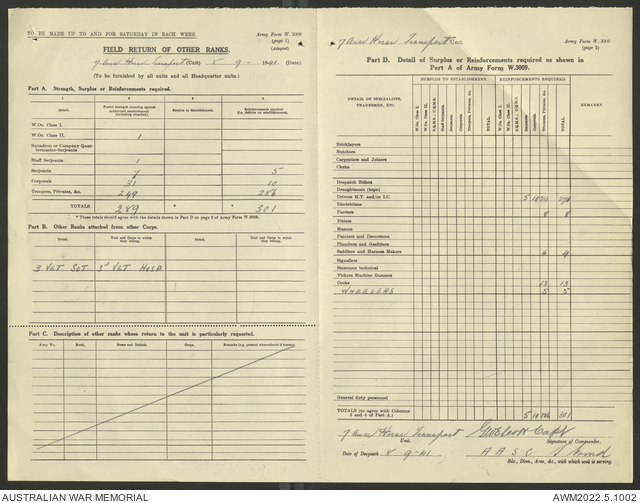 TO BE MADE UP TO AND FOR SATURDAY IN EACH WEEK.
Army Form W. 3009
(page 1)
(Adapted)
FIELD RETURN OF OTHER RANKS.
7 Aust Horse Transport (Unit) 8 - 9 - 1941 (Date)
(To be furnished by all units and all Headquarter units.)
Part A. Strength, Surplus or Reinforcements required.
1 2 3 4
Detail. Posted strength counting against authorised establishment (excluding attached). Surplus to Establishment. Reinforcements required (i.e. deficits on establishments).
W.Os. Class I.
W.Os. Class II. 1
Squadron or Company Quartermaster-Serjeants
Staff Serjeants 1
Serjeants 7 5
Corporals 31 10
Troopers, Privates, &c. 249 286
TOTALS 289 * * 301
* These totals should agree with the details shown in Part D on page 2 of Army Form W.3009.
Part B. Other Ranks attached from other Corps.
Detail. Unit and Corps to which they belong. Detail. Unit and Corps to which they belong.
3 VET SGT 3rd VET HOSP
Part C. Description of other ranks whose return to the unit is particularly requested.
Army No. Rank. Name and Initials. Corps. Remarks (e.g. present whereabouts if known).
7 Aust Horse Transport Coy
Army Form W. 3009
(page 2)
Part D. Detail of Surplus or Reinforcements required as shown in
Part A of Army Form W.3009.
DETAIL OF SPECIALISTS, TRADESMEN, ETC. SURPLUS TO ESTABLISHMENT. REINFORCEMENTS REQUIRED. REMARKS.
W.Os. Class I. W.Os. Class II. S.Q.M.S.; C.Q.M.S. Staff-Serjeants. Serjeants. Corporals. Troopers, Privates, &c. TOTAL. W.Os. Class I. W.Os. Class II. S.Q.M.S.; C.Q.M.S. Serjeants. Corporals. Troopers, Privates, &c. TOTAL.
Bricklayers
Butchers
Carpenters and Joiners
Clerks
Despatch Riders
Draughtsmen (topo)
Drivers H.T. and/or I.C. 5 10
Electricians
Farriers 8 8
Fitters
Masons
Painters and Decorators
Plumbers and Gasfitters
Saddlers and Harness Makers 4 4
Signallers
Storemen technical
Vickers Machine Gunners
Cooks 13 13
WHEELERS 5 5
General duty personnel
TOTALS (to agree with Columns 3 and 4 of Part A.) 5 10 286 301
7 Aust Horse Transport
Unit.
Capt
Signature of Commander.
Date of Despatch 8 - 9 - 41
A A S C
Bde., Divn., Area, &c., with which unit is serving.
AUSTRALIAN WAR MEMORIAL
AWM2022.5.1002